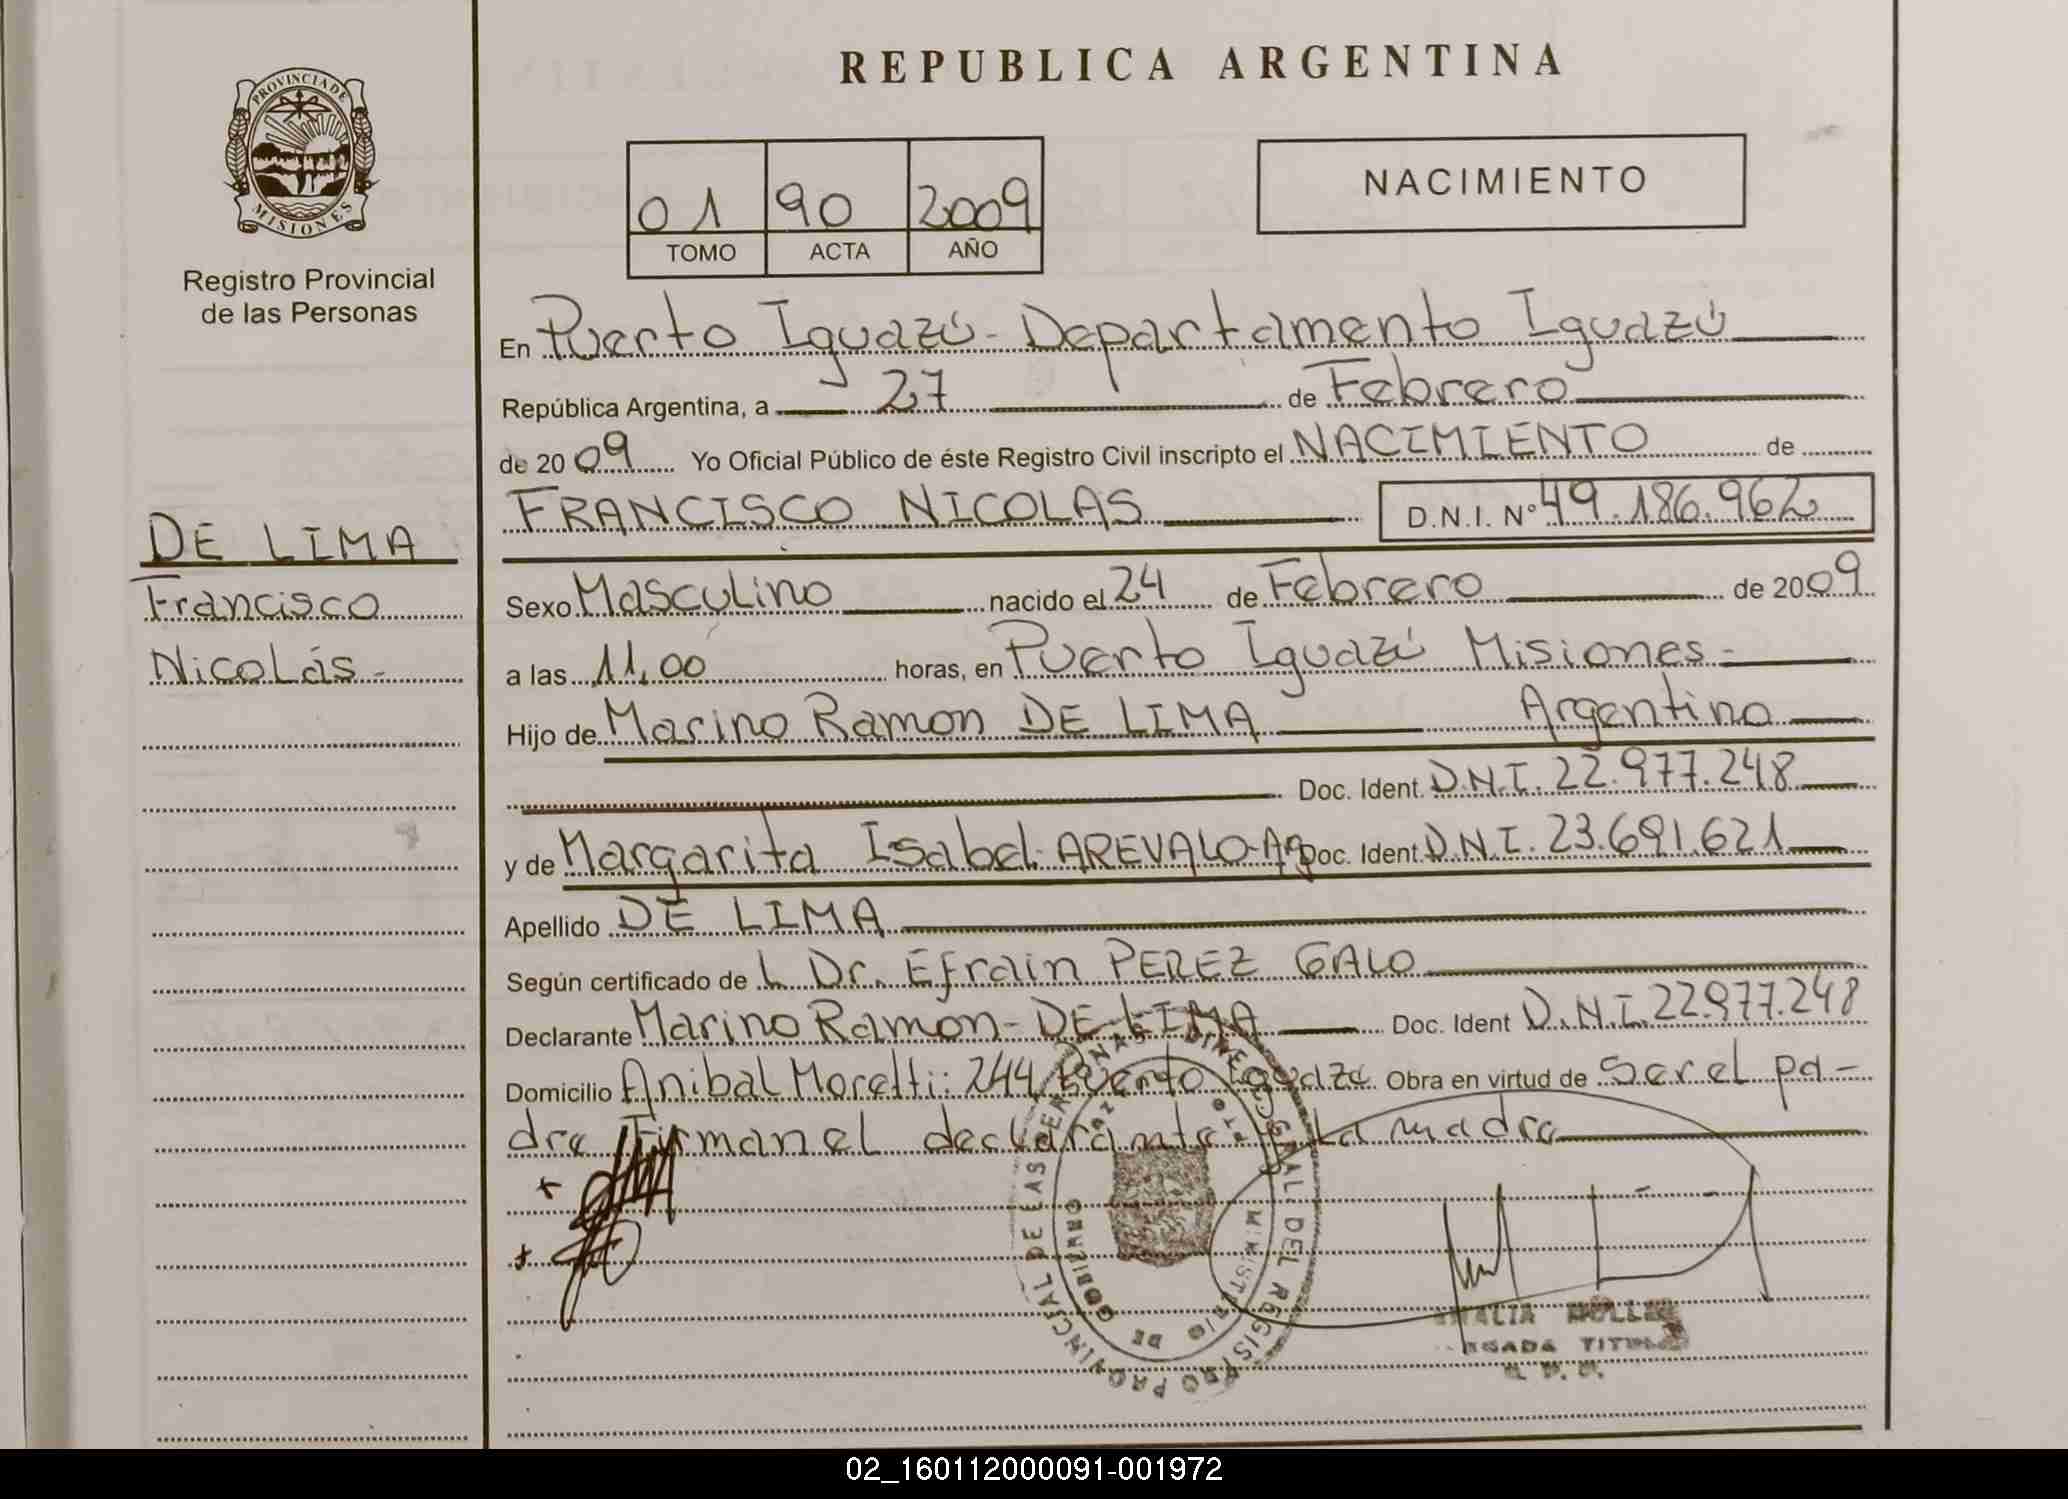 REPUBLICA ARGENTINA
PROVINCIA DE MISIONES
Registro Provincial
de las Personas
01 90 2009
TOMO ACTA AÑO
NACIMIENTO
En Puerto Iguazú - Departamento Iguazú
República Argentina, a 27 de Febrero
de 2009 Yo Oficial Público de éste Registro Civil inscripto el NACIMIENTO de
FRANCISCO NICOLAS D.N.I. Nº 49.186.962
DE LIMA
Francisco
Nicolás -
Sexo Masculino nacido el 24 de Febrero de 2009
a las 11,00 horas, en Puerto Iguazú Misiones -
Hijo de Marino Ramon DE LIMA Argentino
Doc. Ident. D.N.I. 22.977.248
y de Margarita Isabel AREVALO - Ag Doc. Ident. D.N.I. 23.691.621
Apellido DE LIMA
Según certificado de L Dr. Efrain PEREZ GALO
Declarante Marino Ramon - DE LIMA Doc. Ident D.N.I. 22.977.248
Domicilio Anibal Moretti: 244 Puerto Iguazú Obra en virtud de Ser el pa-
dre Firman el declarante y La madre
PROVINCIAL DE LAS PERSONAS DIREC. GRAL. DEL REGISTRO
MINISTERIO DE GOBIERNO
MULLER
TITULAR
02_160112000091-001972